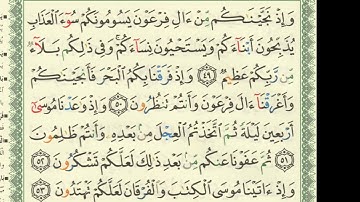 وَإِذْ نَجَّيْنَٰكُم مِّنْ ءَالِ فِرْعَوْنَ يَسُومُونَكُمْ سُوٓءَ ٱلْعَذَابِ
يُذَبِّحُونَ أَبْنَآءَكُمْ وَيَسْتَحْيُونَ نِسَآءَكُمْ وَفِى ذَٰلِكُم بَلَآءٌ
مِّن رَّبِّكُمْ عَظِيمٌ ٤٩ وَإِذْ فَرَقْنَا بِكُمُ ٱلْبَحْرَ فَأَنجَيْنَٰكُمْ
وَأَغْرَقْنَآ ءَالَ فِرْعَوْنَ وَأَنتُمْ تَنظُرُونَ ٥٠ وَإِذْ وَٰعَدْنَا مُوسَىٰٓ
أَرْبَعِينَ لَيْلَةً ثُمَّ ٱتَّخَذْتُمُ ٱلْعِجْلَ مِنۢ بَعْدِهِۦ وَأَنتُمْ ظَٰلِمُونَ
٥١ ثُمَّ عَفَوْنَا عَنكُم مِّنۢ بَعْدِ ذَٰلِكَ لَعَلَّكُمْ تَشْكُرُونَ ٥٢
وَإِذْ ءَاتَيْنَا مُوسَى ٱلْكِتَٰبَ وَٱلْفُرْقَانَ لَعَلَّكُمْ تَهْتَدُونَ ٥٣